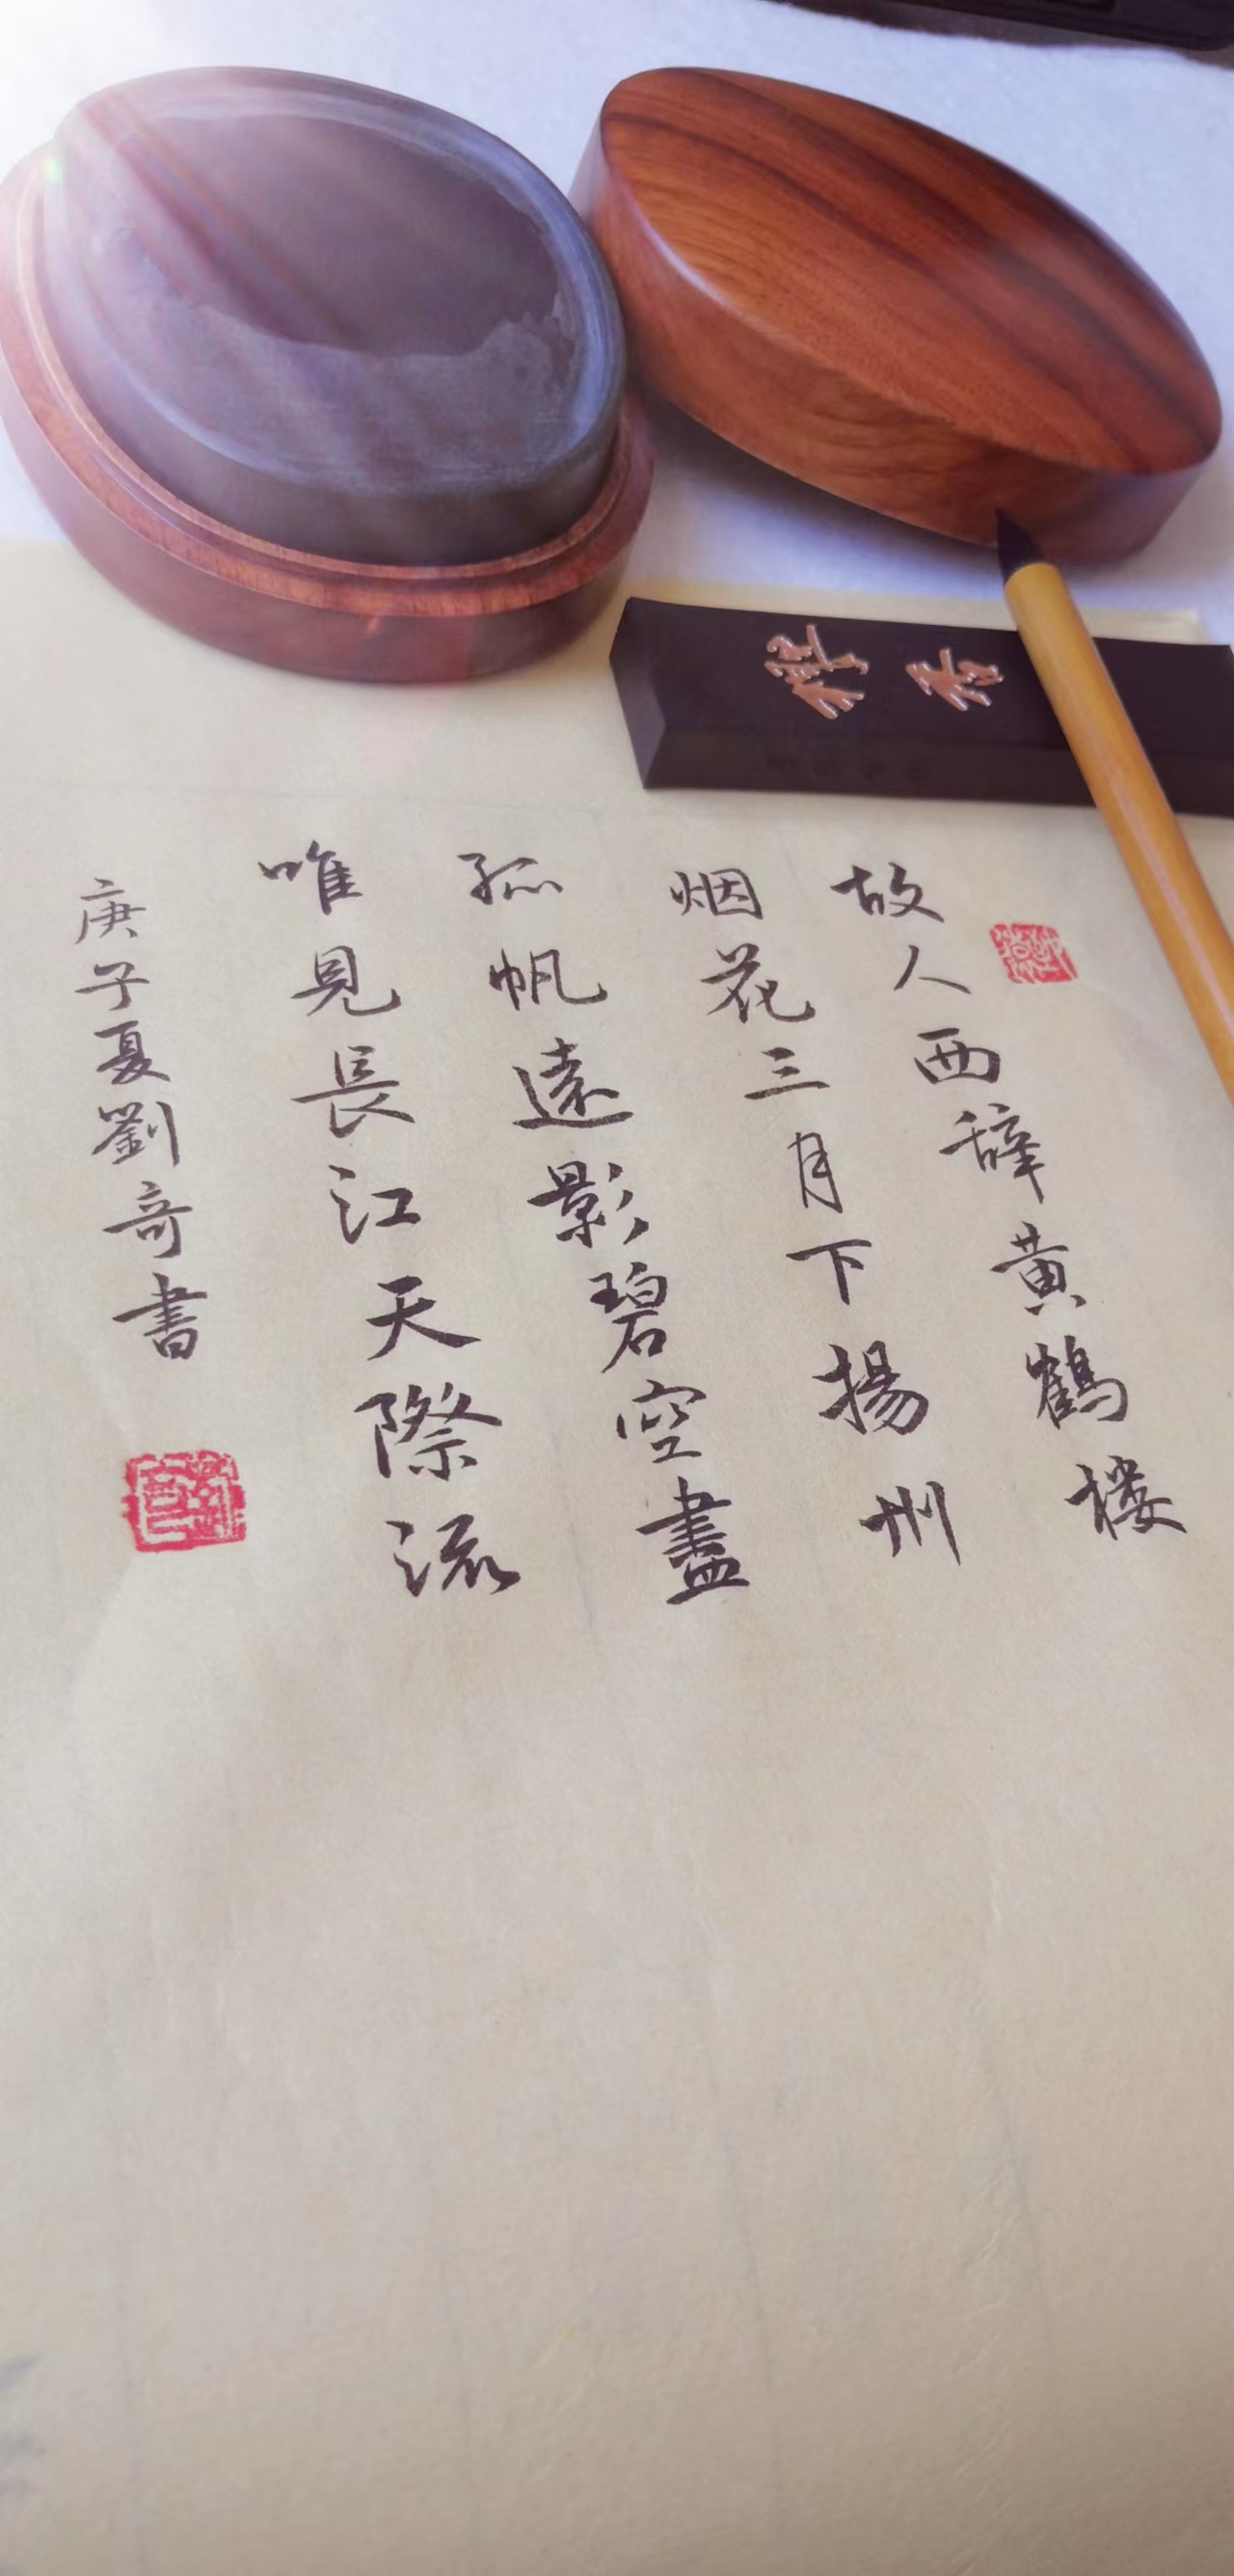 故人西辞黄鶴楼
烟花三月下揚州
孤帆遠影碧空盡
唯見長江天際流
庚子夏劉奇書